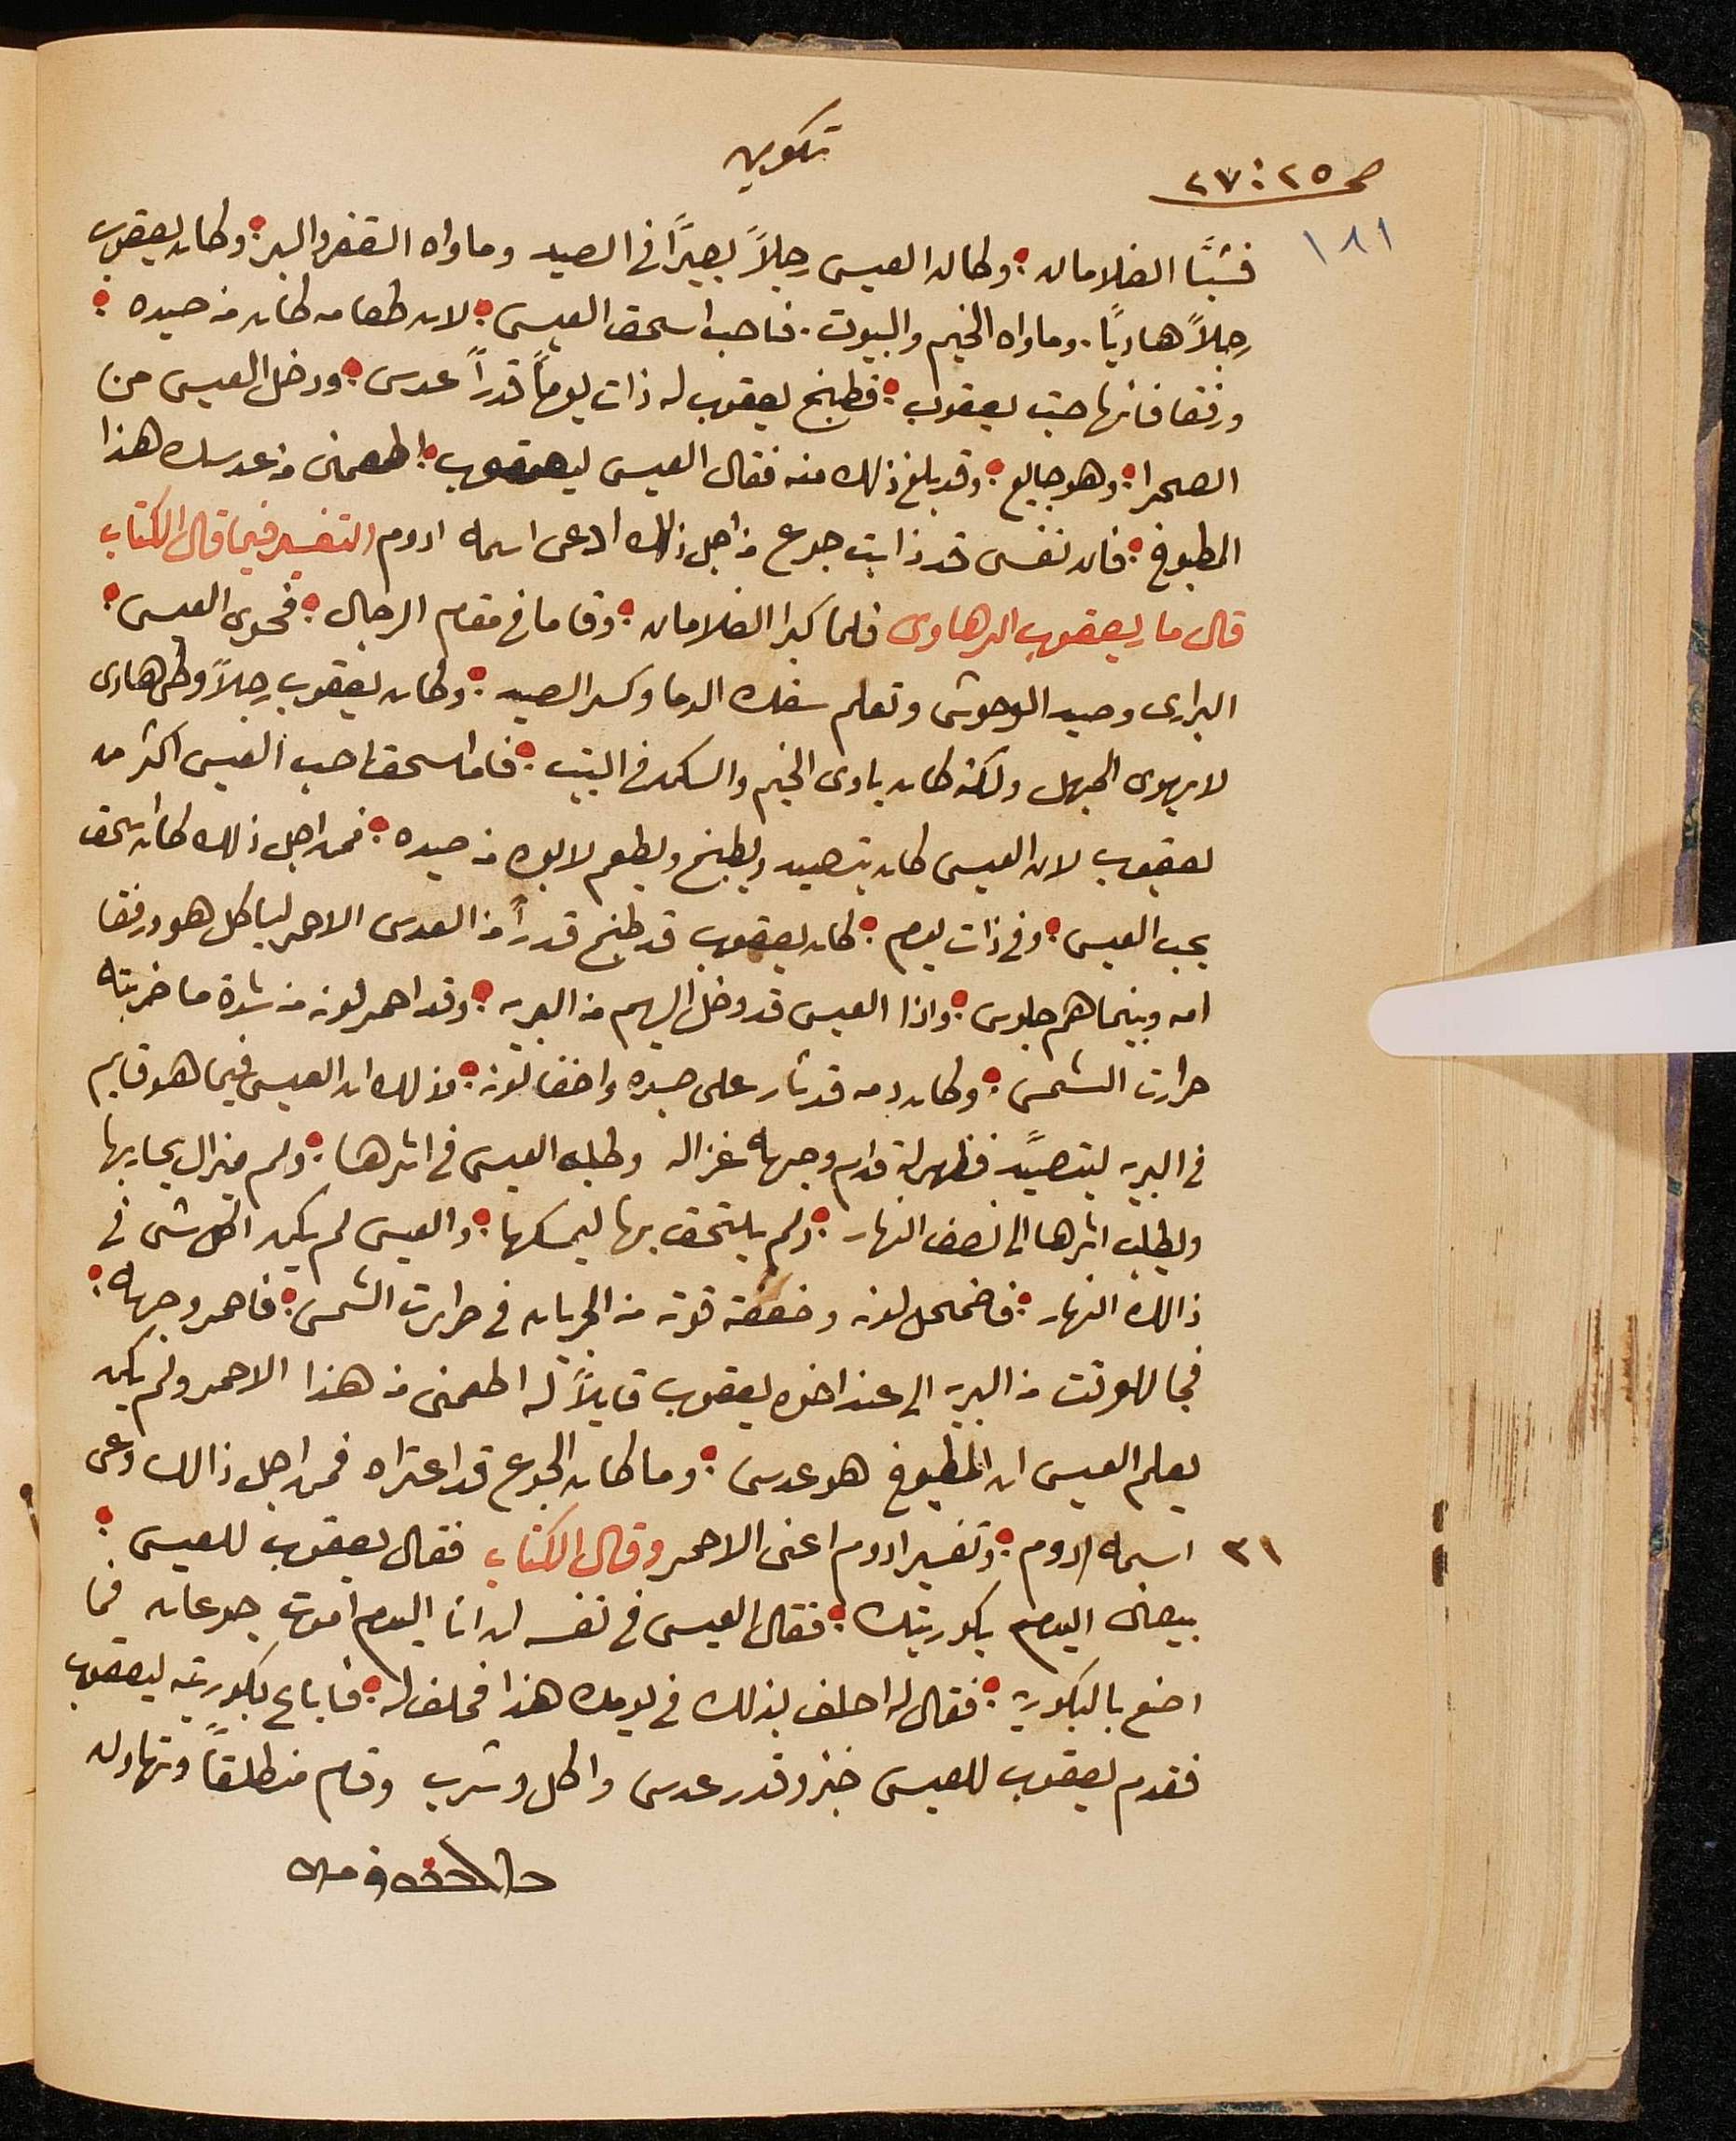 تكوين
صح ٢٥ : ٢٧
١٨١
فشبَّا الغلامان : وكان العيس رجلاً بصيرًا في الصيد وماواه القفر والبر : وكان يعقوب
رجلاً هاديًا . وماواه الخيم والبيوت . فاحب اسحق العيس : لان طعامه كان من صيده :
ورفقا فانها حبت يعقوب : فطبخ يعقوب له ذات يومًا قدراً عدس : ودخل العيس من
الصحرا : وهو جايع : وقد بلغ ذلك منه فقال العيس ليعقوب : اطعمني من عدسك هذا
المطبوخ : فان نفسي قد ذابت جوع من اجل ذلك ادعى اسمه ادوم التفسير فيما قال الكتاب
قال مار يعقوب الرهاوى فلما كبرا الغلامان : وقاما في مقام الرجال : فحوى العيس :
البرارى وصيد الوحوش وتعلم سفك الدما وكسر الصيد : وكان يعقوب رجلاً وطي هادى
لا يهوى الجهل ولكنه كان ياوى الخيم والسكن في البيت : فاما اسحق احب العيس اكثر من
يعقوب لان العيس كان يتصيد ويطبخ ويطعم لابوه من صيده : فمن اجل ذلك كان اسحق
يحب العيس : وفي ذات يوم : كان يعقوب قد طبخ قدراً من العدس الاحمر لياكل هو ورفقا
امه وبينما هم جلوس : واذا العيس قد دخل اليهم من البريه : وقد احمر لونه من شدة ما ضربته
حرارت الشمس : وكان دمه قد ثار على جسده واخفا لونه : وذلك ان العيس فيما هو قايم
في البريه ليتصيَّد فظهر له قدام وجهه غزاله وطلب العيس في اثرها : ولم يزال يحاربها
ويطلب اثرها الى نصف النهار : ولم يلتحق بها ليمسكها : والعيس لم يكن اكل شى في
ذالك النهار : فاضمحل لونه وضعفة قوته من الجريان في حرارت الشمس : فاحمر وجهه :
فجا للوقت من البريه الى عند اخوه يعقوب قايلاً له اطعمني من هذا الاحمر ولم يكن
يعلم العيس ان المطبوخ هو عدس : وما كان الجوع قد اعتراه فمن اجل ذالك دعى
٣١ اسمه ادوم : وتفسير ادوم اعنى الاحمر وقال الكتاب فقال يعقوب للعيس :
بيعنى اليوم بكوريتك : فقال العيس في نفسه ان انا اليوم اموت جوعان فما
اصنع بالبكوريه : فقال له احلف بذلك في يومك هذا فحلف له : فاباع بكوريته ليعقوب
فقدم يعقوب للعيس خبز وقدر عدس واكل وشرب وقام منطلقاً وتهاون